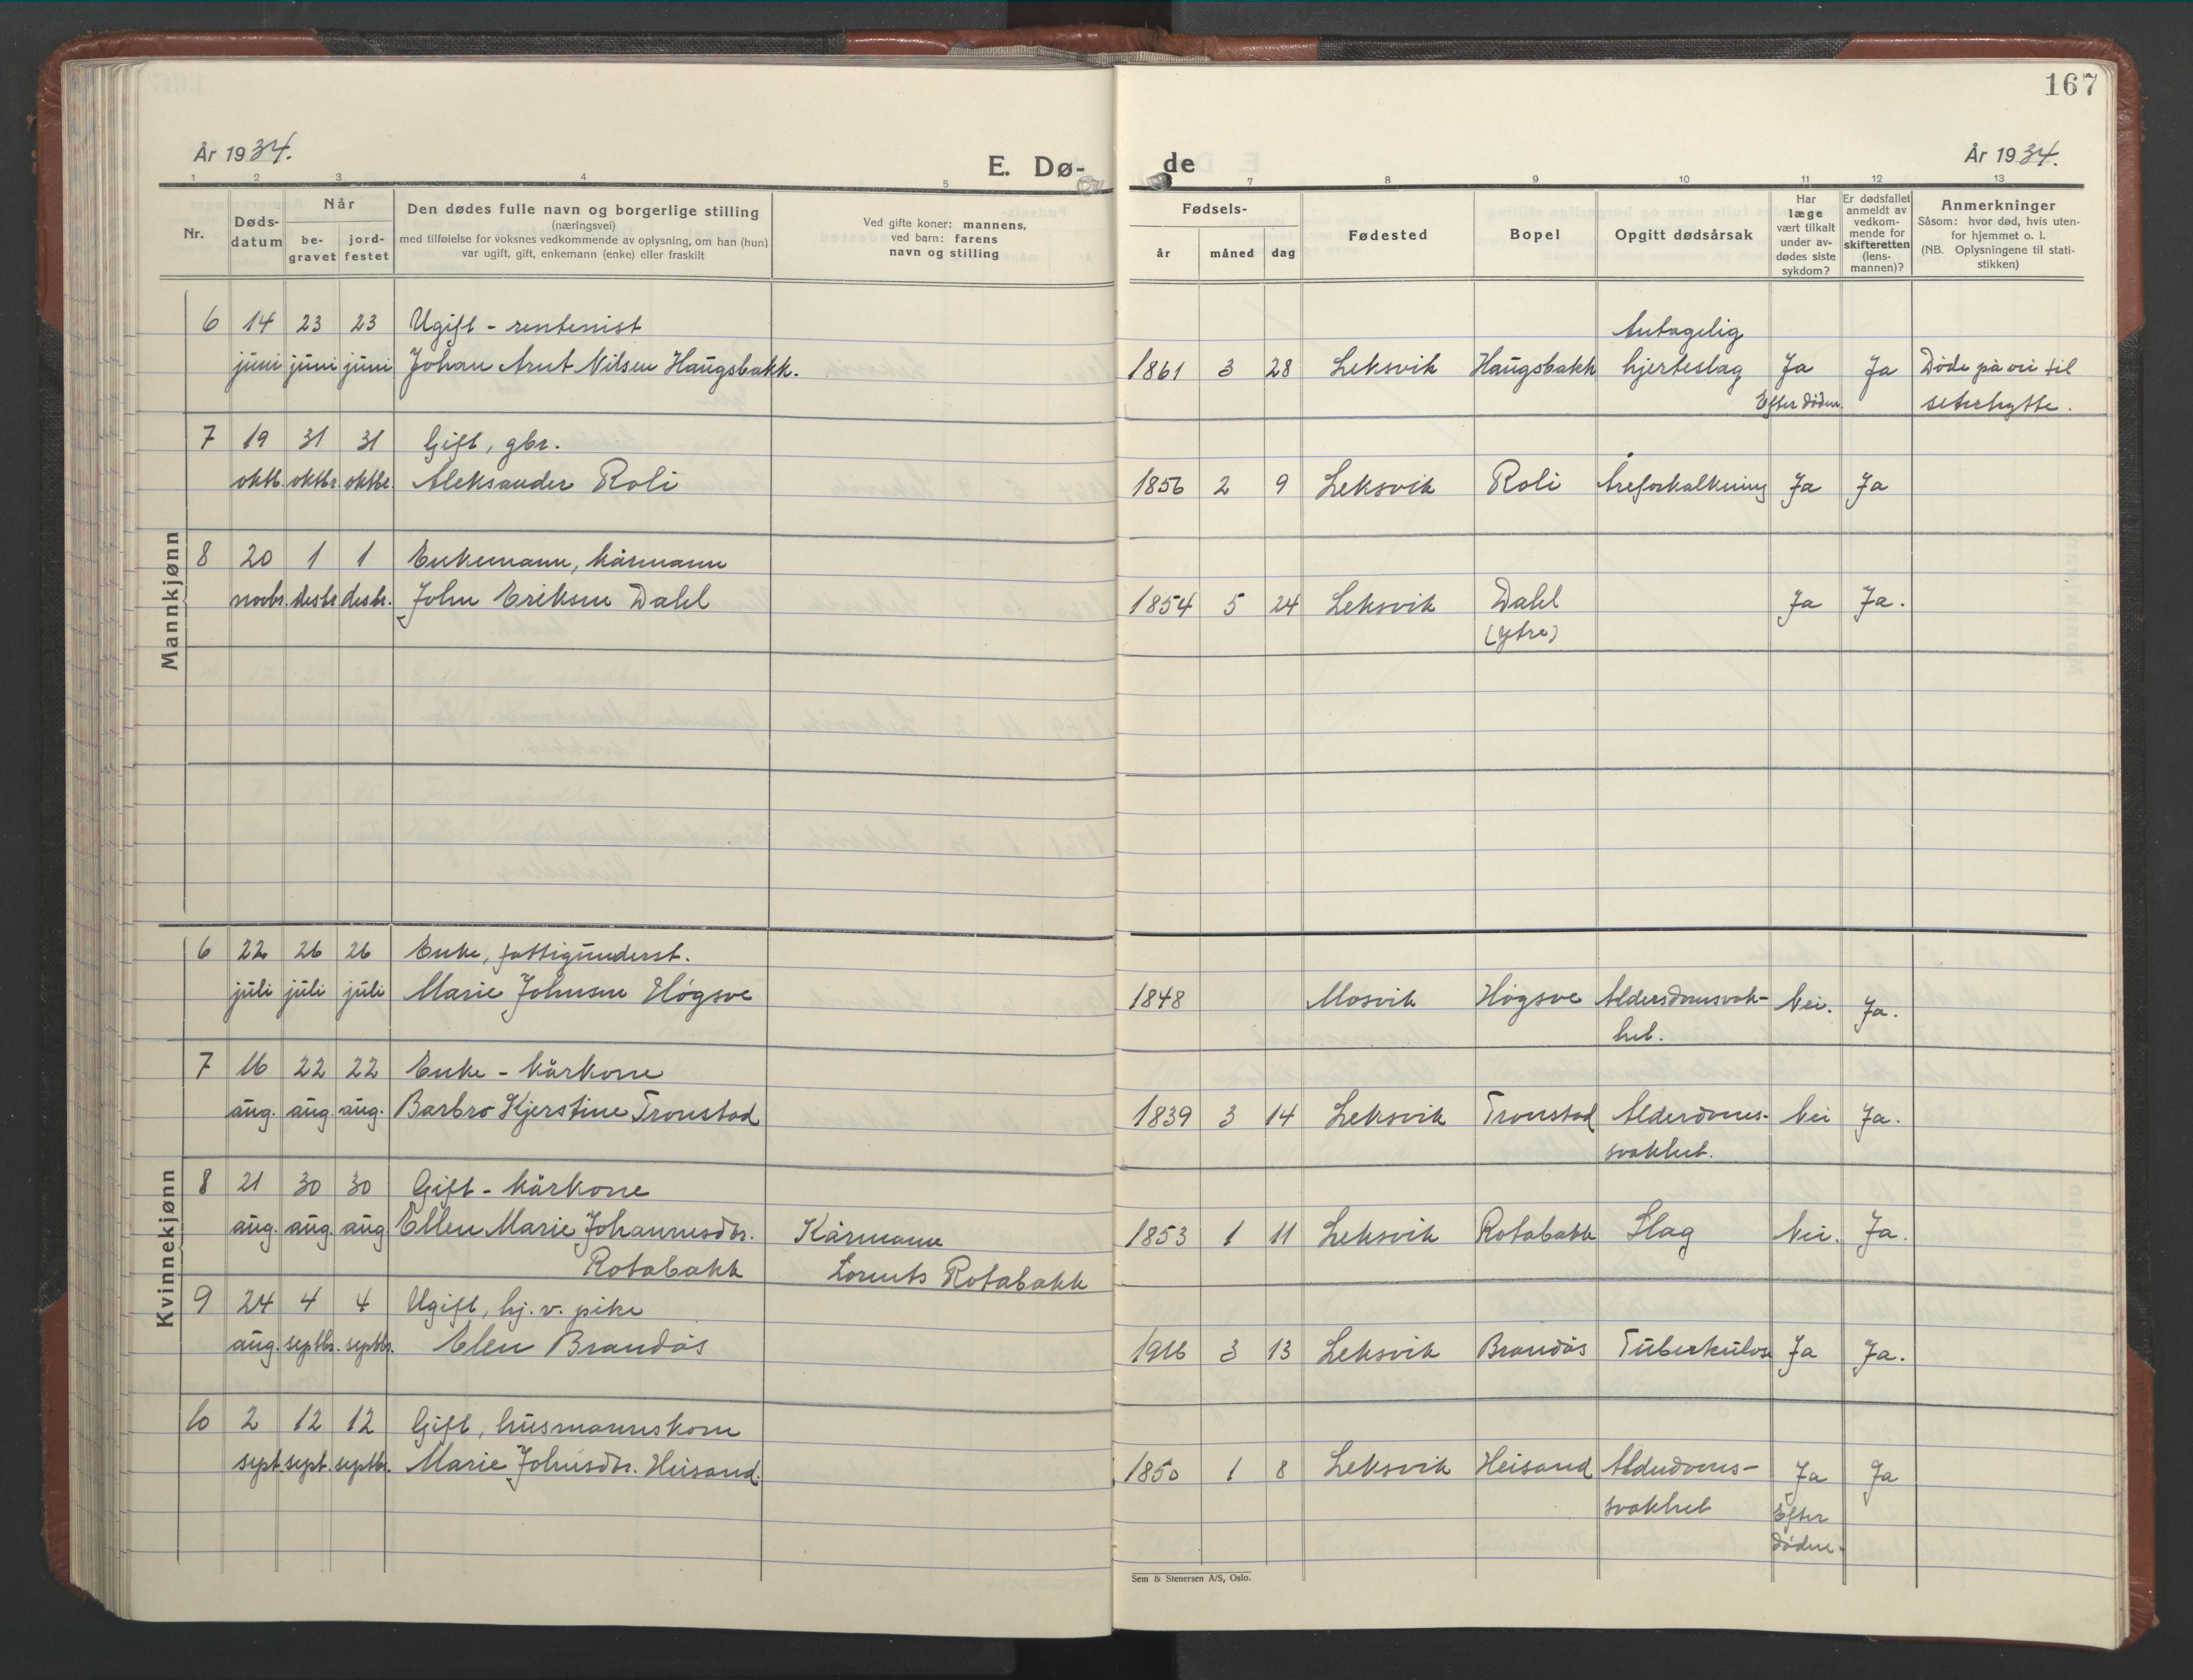 167
År 1934.
E. Dø-
de
År 1934.
1 2 3 4 5 7 8 9 10 11 12 13
Nr.
Døds-
datum
Når
be-
gravet
jord-
festet
Den dødes fulle navn og borgerlige stilling
(næringsvei)
med tilføielse for voksnes vedkommende av oplysning, om han (hun)
var ugift, gift, enkemann (enke) eller fraskilt
Ved gifte koner: mannens,
ved barn: farens
navn og stilling
Fødsels-
år måned dag
Fødested
Bopel
Opgitt dødsårsak
Har
læge
vært tilkalt
under av-
dødes siste
sykdom?
Er dødsfallet
anmeldt av
vedkom-
mende for
skifteretten
(lens-
mannen)?
Anmerkninger
Såsom: hvor død, hvis uten-
for hjemmet o. l.
(NB. Oplysningene til stati-
stikken)
Mannkjønn
6 14 23 23 Ugift - rentenist Antagelig
juni juni juni Johan Arnt Nilsen Haugsbakk. 1861 3 28 Leksvik Haugsbakk hjerteslag Ja Ja Døde på vei til
Efter døden. seterhytte.
7 19 31 31 Gift, gbr.
oktb. oktbr. oktbr. Aleksander Roli 1856 2 9 Leksvik Roli Åreforkalkning Ja Ja
8 20 1 1 Enkemann, kårmann
novbr. desbr. desbr. John Eriksen Dahl 1854 5 24 Leksvik Dahl Ja Ja.
(ytre)
Kvinnekjønn
6 22 26 26 Enke, fattigunderst.
juli juli juli Marie Johnsen Høgsve 1848 Mosvik Høgsve Aldersdomsvak- Nei. Ja.
het.
7 16 22 22 Enke - kårkone
aug. aug. aug. Barbro Kjerstine Tronstad 1839 3 14 Leksvik Tronstad Alderdoms- Nei Ja.
svakhet.
8 21 30 30 Gift - kårkone
aug. aug. aug Ellen Marie Johannesdtr. Kårmann 1853 1 11 Leksvik Rotabakk Slag Nei. Ja.
Rotabakk Lorents Rotabakk
9 24 4 4 Ugift, hj. v. pike
aug. septbr. septbr. Elen Brandås 1916 3 13 Leksvik Brandås Tuberkulose Ja Ja.
10 2 12 12 Gift, husmannskone
sept. sept. septbr. Marie Johnsdtr. Heisand. 1850 1 8 Leksvik Heisand Alderdoms- Ja Ja
svakhet Efter
døden.
Sem & Stenersen A/S, Oslo.